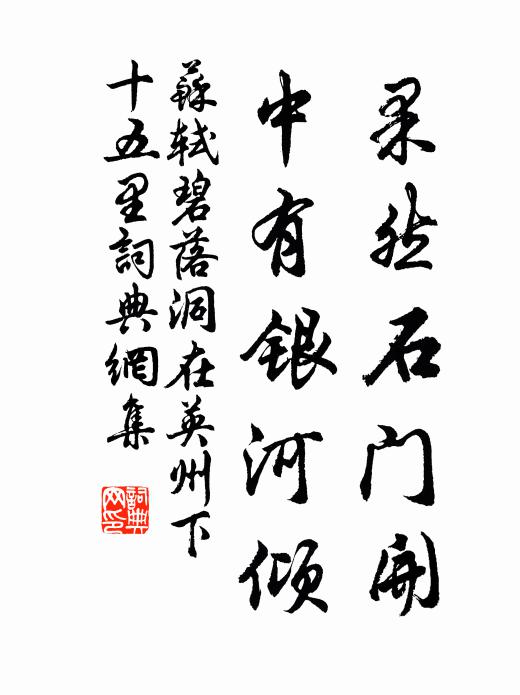 果然石门開
中有銀河傾
蘇軾碧落洞在英州下
十五里詞典網集
詞典网印